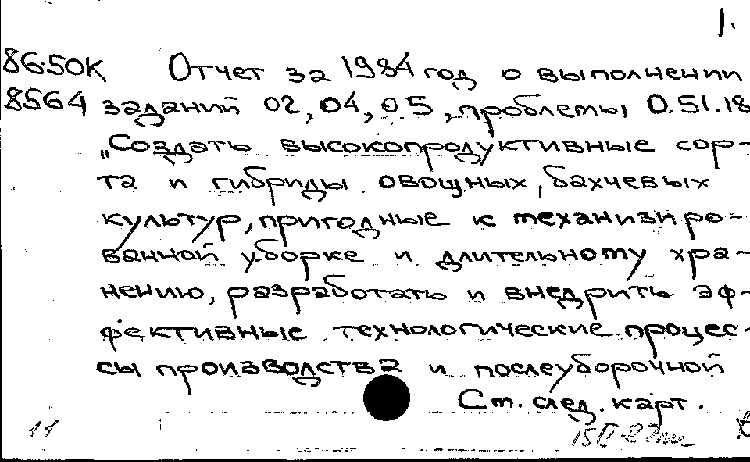 1.
86-50К Отчет за 1984 год о выполнении
8564 заданий 02, 04, 05, проблемы 0.51.18
„Создать высокопродуктивные сор-
та и гибриды овощных, бахчевых
культур, пригодные к механизиро-
ванной уборке и длительному хра-
нению, разработать и внедрить эф-
фективные технологические процес-
сы производства и послеуборочной
См. след. карт.
11